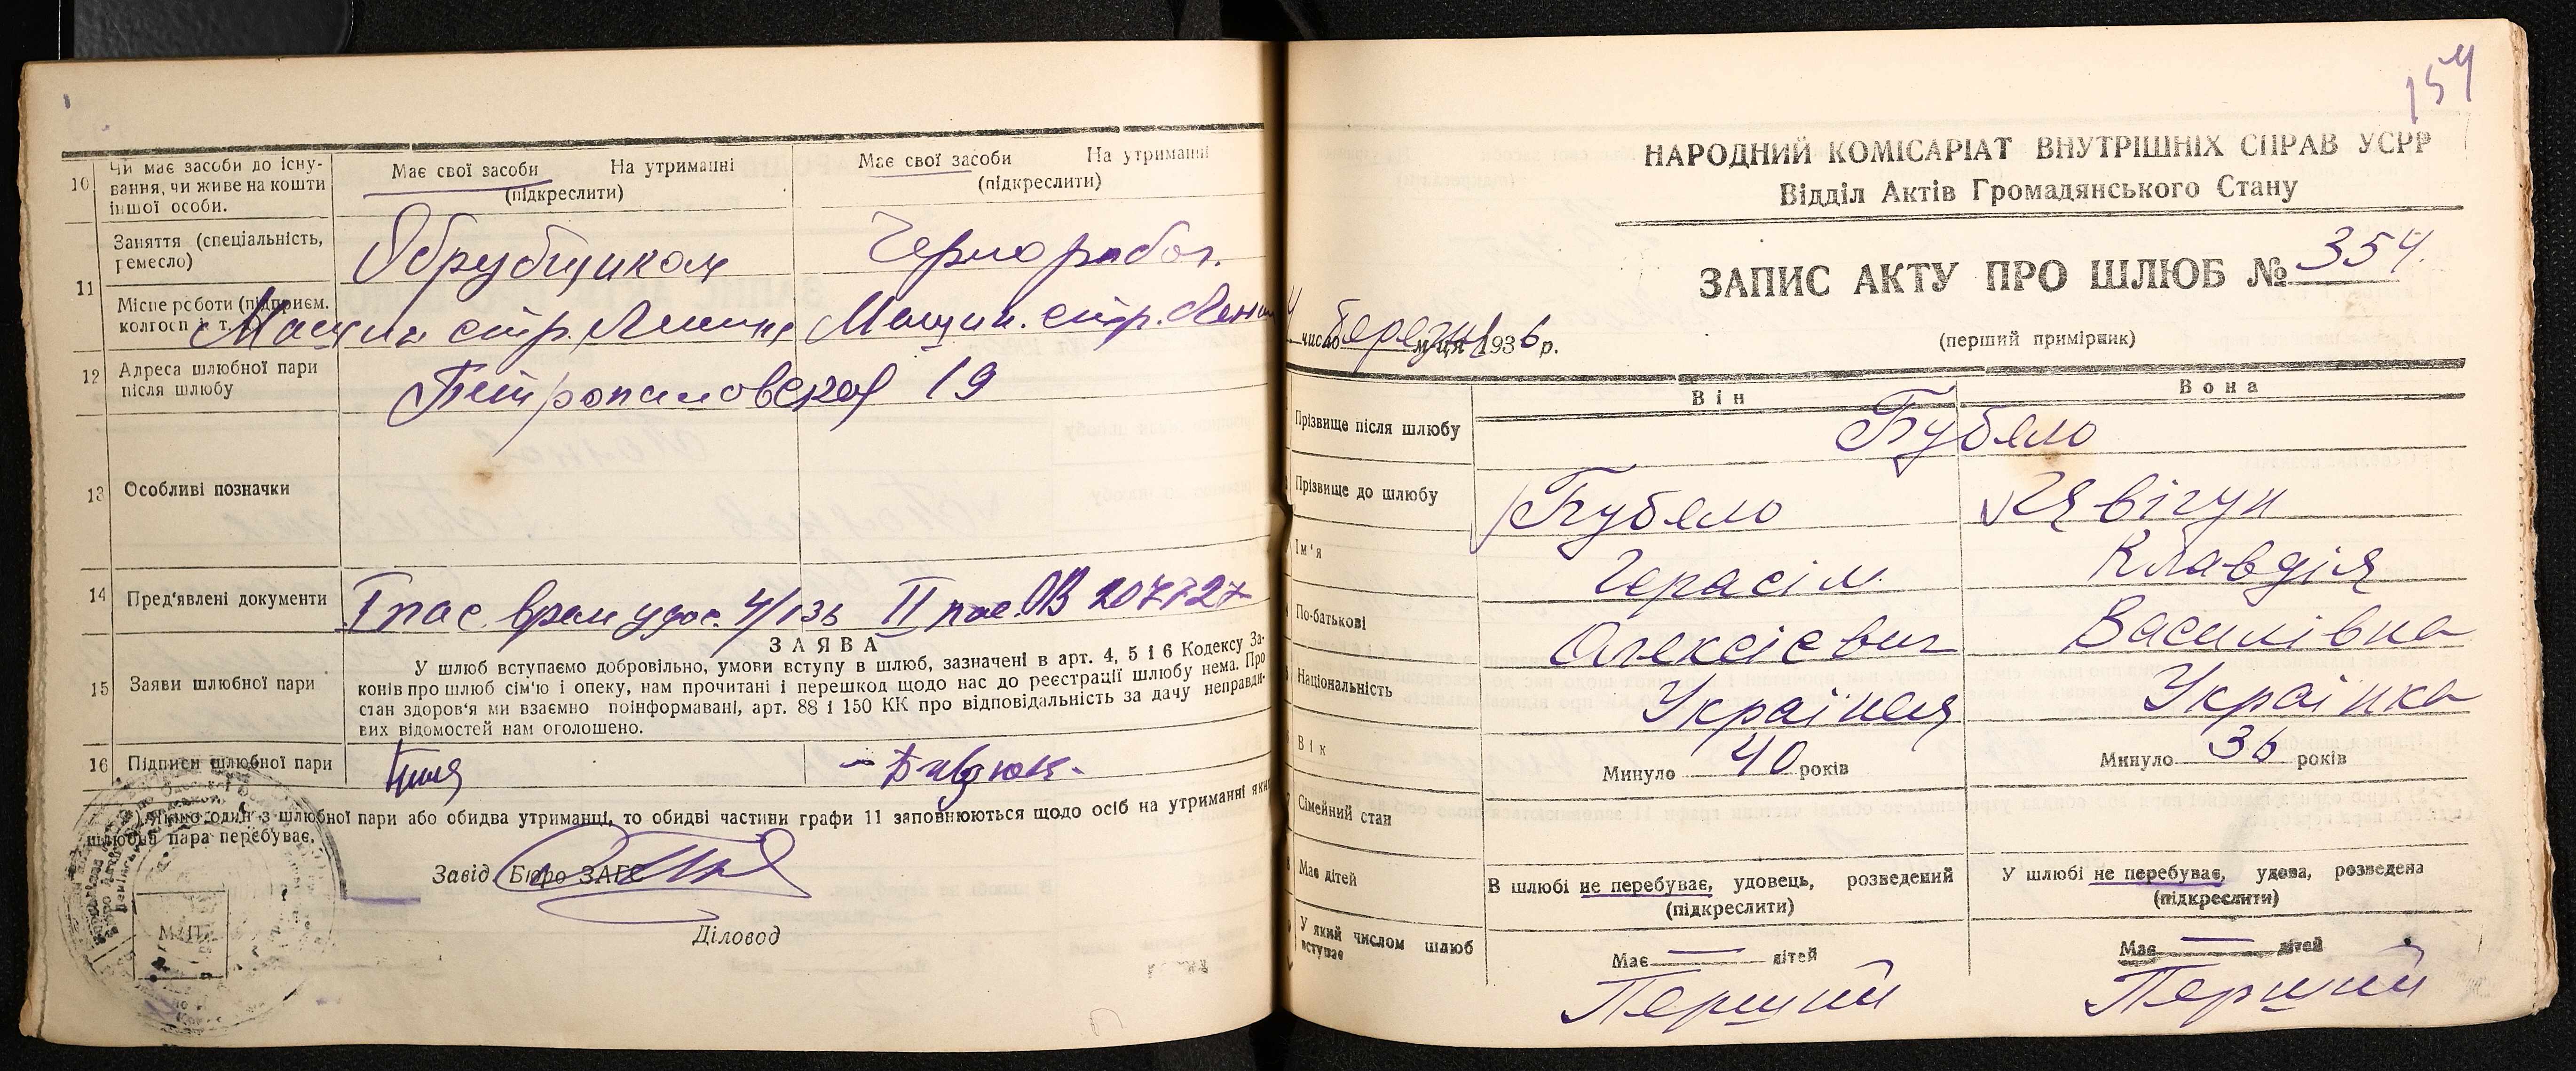 10 Чи має засоби до існу-
вання, чи живе на кошти
іншої особи.
Має свої засоби На утриманні
(підкреслити)
Має свої засоби На утриманні
(підкреслити)
11 Заняття (спеціальність,
ремесло)
Обрубщиком
Чернорабоч.
Місце роботи (підприєм.
колгосп і т.
Машин стр. Ленина
Машин. стр. Ленин
12 Адреса шлюбної пари
після шлюбу
Петропаловская 19
13 Особливі позначки
14 Пред'явлені документи
I пас. врем удос. 4/136 II пас ОВ 207127
15 Заяви шлюбної пари
ЗАЯВА
У шлюб вступаємо добровільно, умови вступу в шлюб, зазначені в арт. 4, 5 і 6 Кодексу За-
конів про шлюб сім'ю і опеку, нам прочитані і перешкод щодо нас до реєстрації шлюбу нема. Про
стан здоров'я ми взаємно поінформавані, арт. 88 і 150 КК про відповідальність за дачу неправди-
вих відомостей нам оголошено.
16 Підписи шлюбної пари
) Якщо один з шлюбної пари або обидва утриманці, то обидві частини графи 11 заповнюються щодо осіб на утриманні яких
шлюбна пара перебуває.
Завід. Бюро ЗАГС
Діловод
М.П.
154
НАРОДНИЙ КОМІСАРІАТ ВНУТРІШНІХ СПРАВ УСРР
Відділ Актів Громадянського Стану
ЗАПИС АКТУ ПРО ШЛЮБ № 354.
(перший примірник)
4 число березня м-ця 1936 р.
Він Вона
Прізвище після шлюбу Бубело
Прізвище до шлюбу Бубело Явігун
Ім'я Герасім Клавдія
По-батькові Олексієвич Василівна
Національність Українец Українка
Вік Минуло 40 років Минуло 36 років
Сімейний стан
В шлюбі не перебуває, удовець, розведений
(підкреслити)
У шлюбі не перебуває, удова, розведена
(підкреслити)
Має дітей
Має — дітей Має — дітей
У який числом шлюб
вступає
Перший Перший